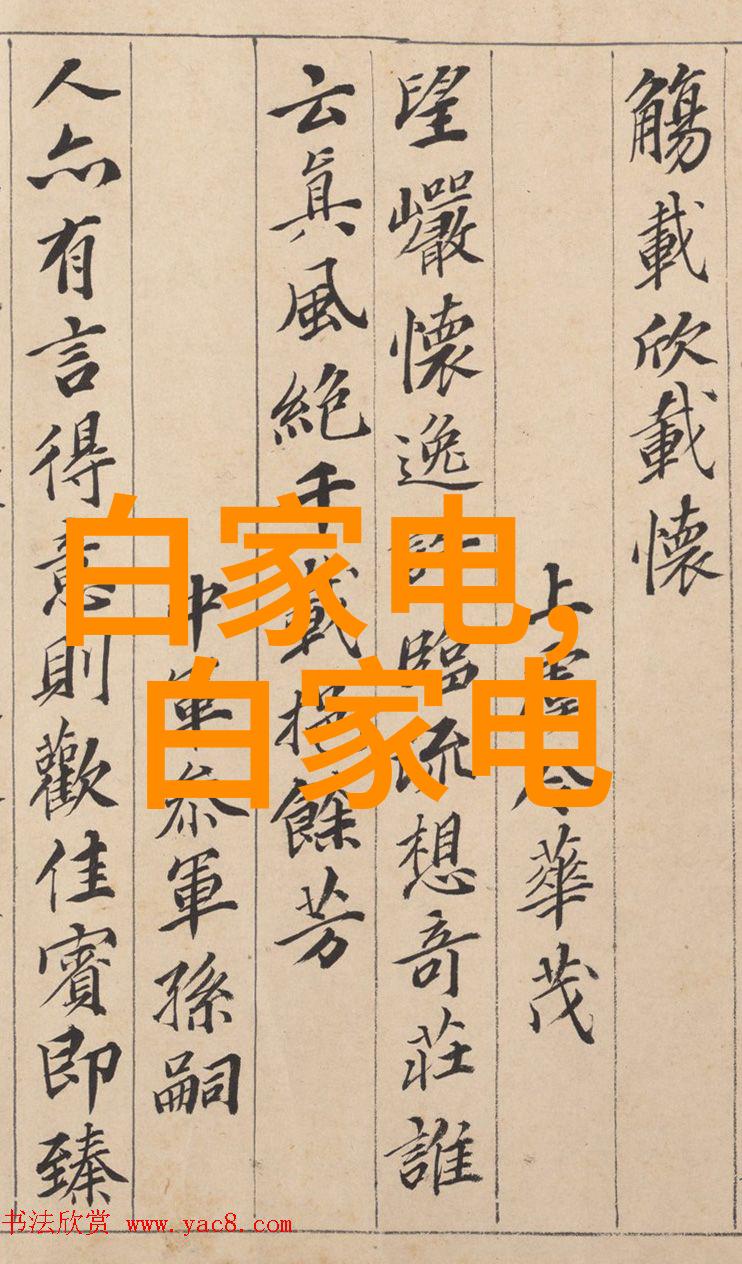 觴載欣載懷
上虞令華茂
望巖懷逸許臨流想奇莊誰
云眞風絕千載挹餘芳
中軍參軍孫嗣
人亦有言得意則歡佳賓即臻
白家电,
白家电
书法欣赏 www.yac8.com